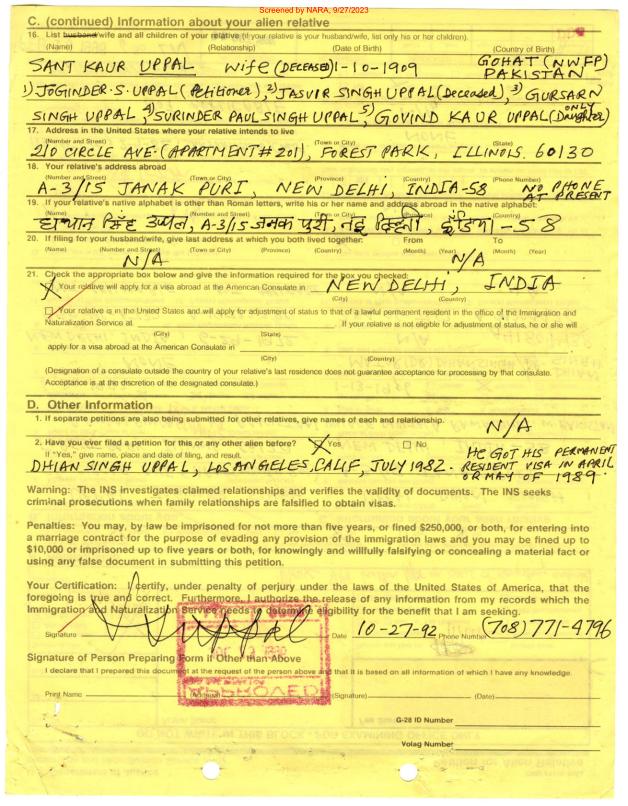 Screened by NARA, 9/27/2023
C. (continued) Information about your alien relative
16. List husband/wife and all children of your relative (if your relative is your husband/wife, list only his or her children).
(Name) (Relationship) (Date of Birth) (Country of Birth)
SANT KAUR UPPAL wife (DECEASED) 1-10-1909 GOHAT (NWFP) PAKISTAN
1) JOGINDER·S·UPPAL (Petitioner), 2) JASVIR SINGH UPPAL (Deceased), 3) GURSARN
SINGH UPPAL, 4) SURINDER PAUL SINGH UPPAL, 5) GOVIND KAUR UPPAL (ONLY Daughter)
17. Address in the United States where your relative intends to live
(Number and Street) (Town or City) (State)
210 CIRCLE AVE. (APARTMENT # 201), FOREST PARK, ILLINOIS. 60130
18. Your relative's address abroad
(Number and Street) (Town or City) (Province) (Country) (Phone Number)
A-3/15 JANAK PURI, NEW DELHI, INDIA-58 NO PHONE AT PRESENT
19. If your relative's native alphabet is other than Roman letters, write his or her name and address abroad in the native alphabet:
(Name) (Number and Street) (Town or City) (Province) (Country)
सिंह उप्पल, A-3/15 जनक पुरी, नई दिल्ली, इंडिया -58
20. If filing for your husband/wife, give last address at which you both lived together: From To
(Name) (Number and Street) (Town or City) (Province) (Country) (Month) (Year) (Month) (Year)
N/A N/A
21. Check the appropriate box below and give the information required for the box you checked:
Your relative will apply for a visa abroad at the American Consulate in NEW DELHI, INDIA
(City) (Country)
Your relative is in the United States and will apply for adjustment of status to that of a lawful permanent resident in the office of the Immigration and
Naturalization Service at . If your relative is not eligible for adjustment of status, he or she will
(City) (State)
apply for a visa abroad at the American Consulate in
(City) (Country)
(Designation of a consulate outside the country of your relative's last residence does not guarantee acceptance for processing by that consulate.
Acceptance is at the discretion of the designated consulate.)
D. Other Information
1. If separate petitions are also being submitted for other relatives, give names of each and relationship.
N/A
2. Have you ever filed a petition for this or any other alien before? Yes No
If "Yes," give name, place and date of filing, and result.
DHIAN SINGH UPPAL, LOS ANGELES, CALIF, JULY 1982. HE GOT HIS PERMANENT RESIDENT VISA IN APRIL OR MAY OF 1989.
Warning: The INS investigates claimed relationships and verifies the validity of documents. The INS seeks
criminal prosecutions when family relationships are falsified to obtain visas.
Penalties: You may, by law be imprisoned for not more than five years, or fined $250,000, or both, for entering into
a marriage contract for the purpose of evading any provision of the immigration laws and you may be fined up to
$10,000 or imprisoned up to five years or both, for knowingly and willfully falsifying or concealing a material fact or
using any false document in submitting this petition.
Your Certification: I certify, under penalty of perjury under the laws of the United States of America, that the
foregoing is true and correct. Furthermore, I authorize the release of any information from my records which the
Immigration and Naturalization Service needs to determine eligibility for the benefit that I am seeking.
Signature Date 10-27-92 Phone Number (708) 771-4796
Signature of Person Preparing Form if Other than Above
I declare that I prepared this document at the request of the person above and that it is based on all information of which I have any knowledge.
APPROVED
Print Name (Address) (Signature) (Date)
G-28 ID Number
Volag Number